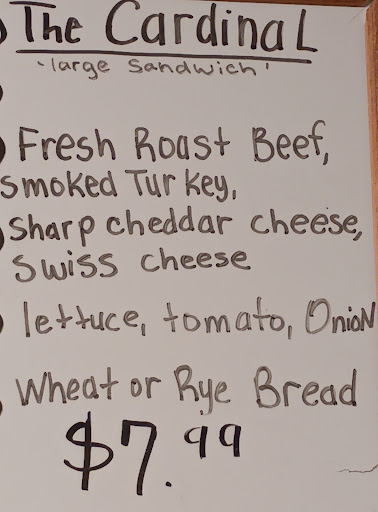 The Cardinal
'large Sandwich'
Fresh Roast Beef,
Smoked Turkey,
Sharp cheddar cheese,
Swiss cheese
lettuce, tomato, Onion
Wheat or Rye Bread
$7.99